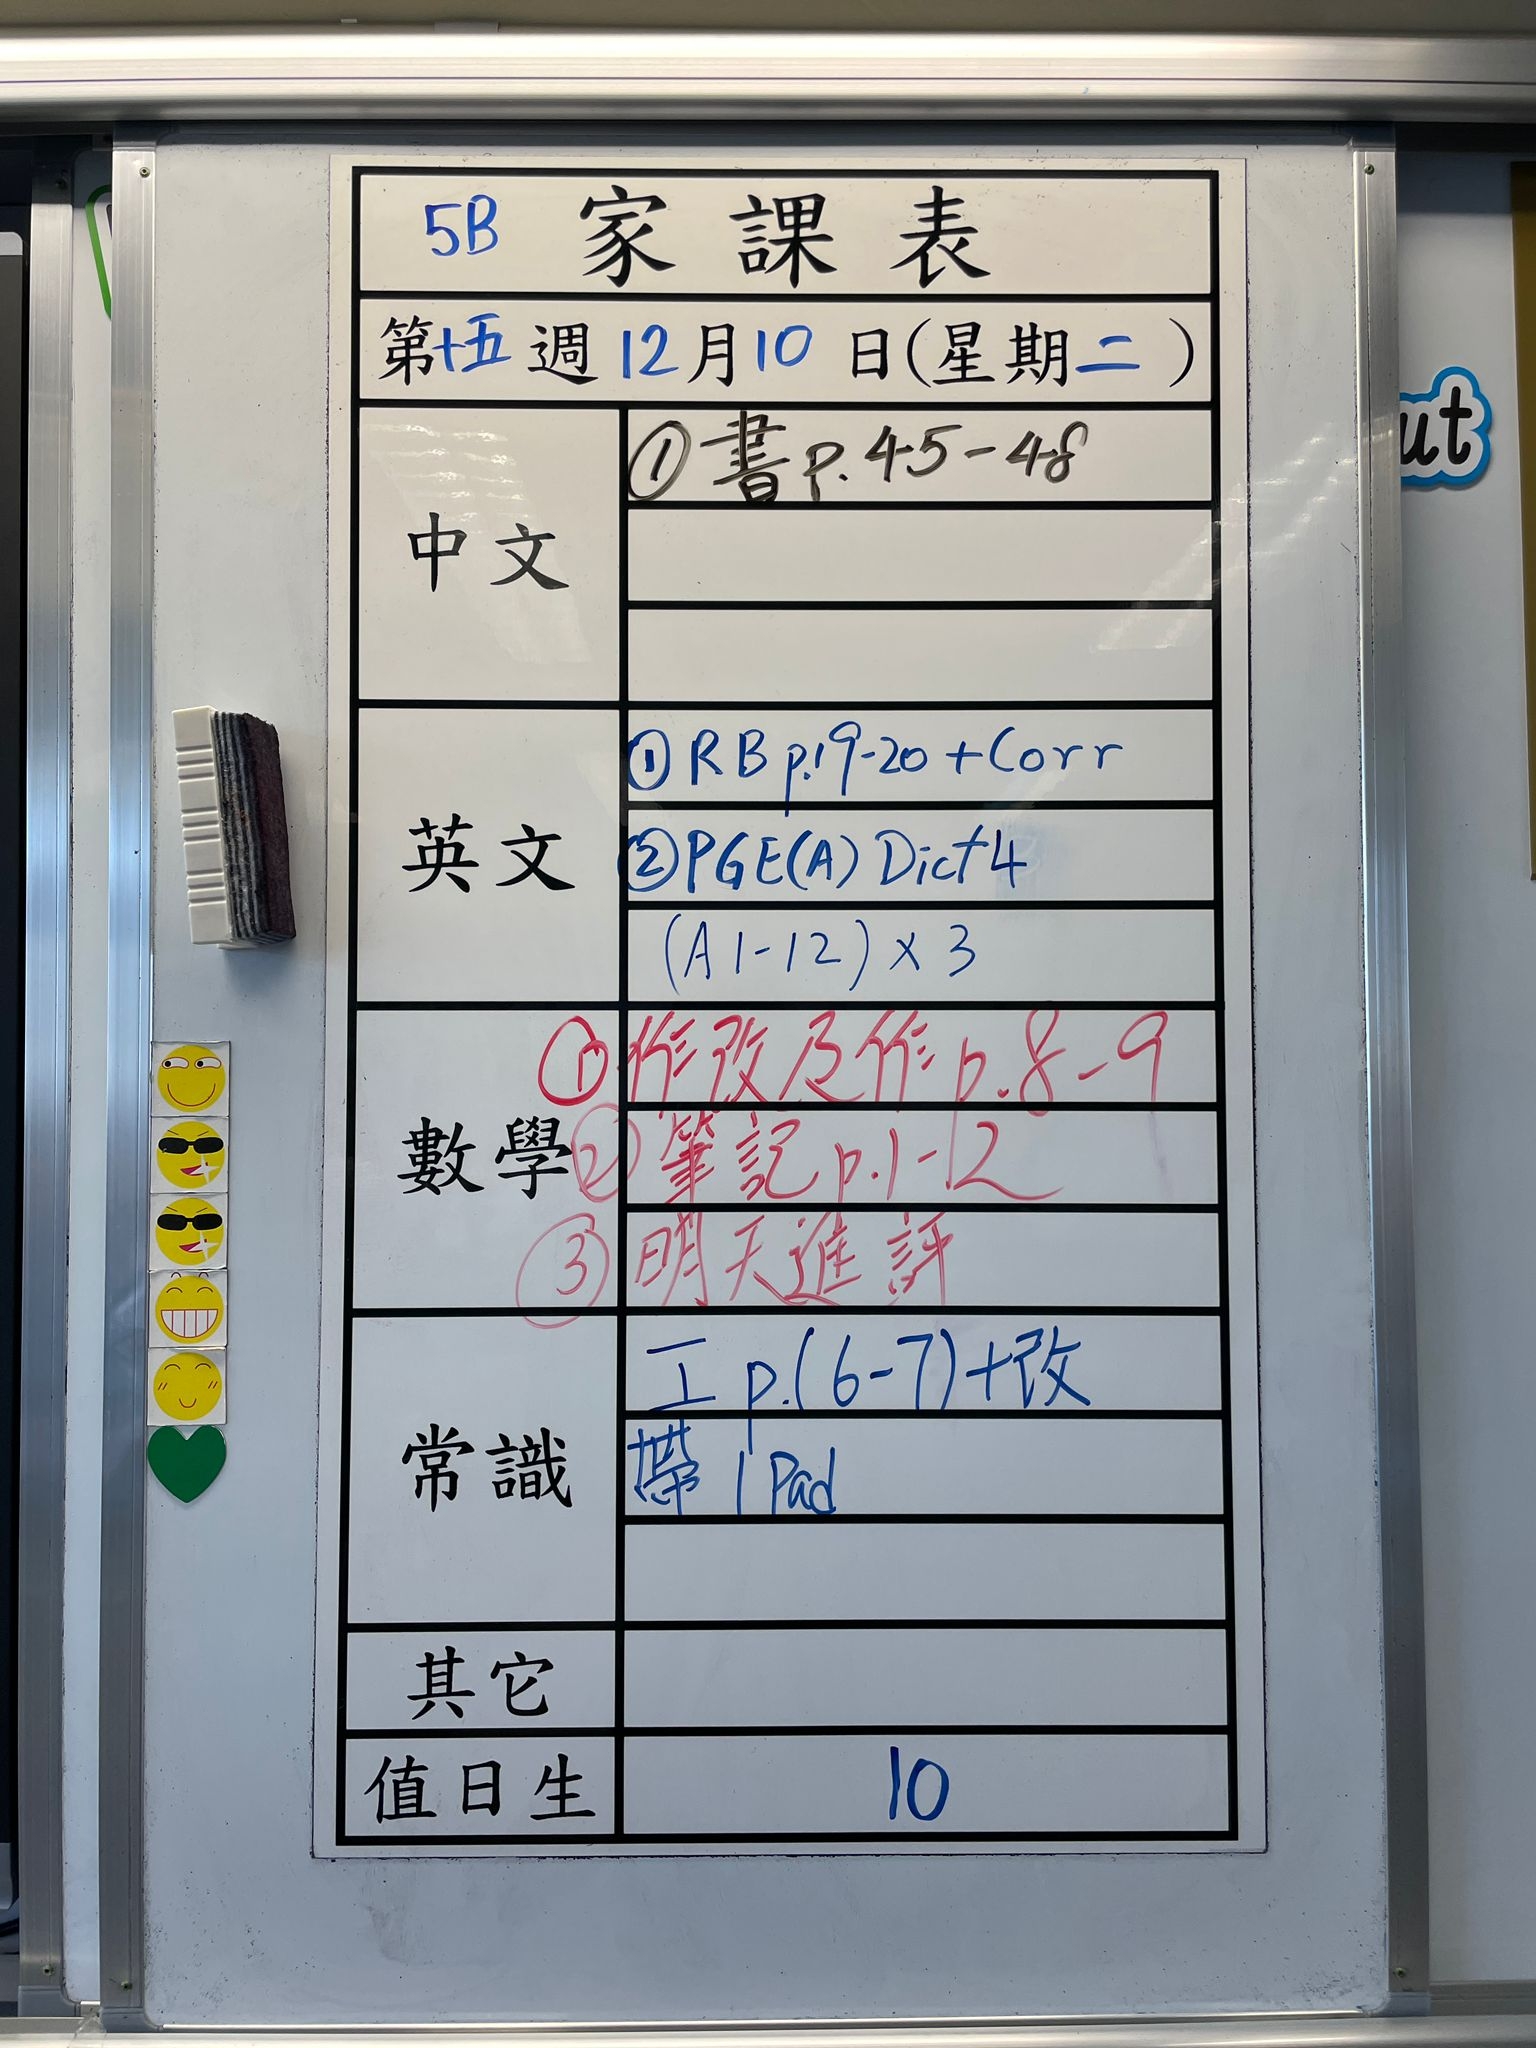 5B 家課表
第十五週12月10日(星期二)
中文
①書p.45-48
英文
①RB p.19-20+Corr
②PGE(A) Dict4
(A1-12)x3
數學
①作改及作p.8-9
②筆記p.1-12
③明天進評
常識
工p.(6-7)+改
帶iPad
其它
值日生
10
ut